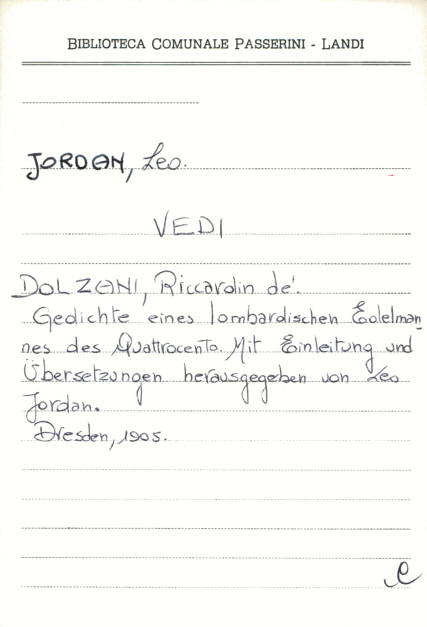 BIBLIOTECA COMUNALE PASSERINI - LANDI
JORDAN, Leo.
VEDI
DOLZANI, Riccardin de'.
Gedichte eines lombardischen Edelman
nes des Quattrocento. Mit Einleitung und
Übersetzungen herausgegeben von Leo
Jordan.
Dresden, 1905.